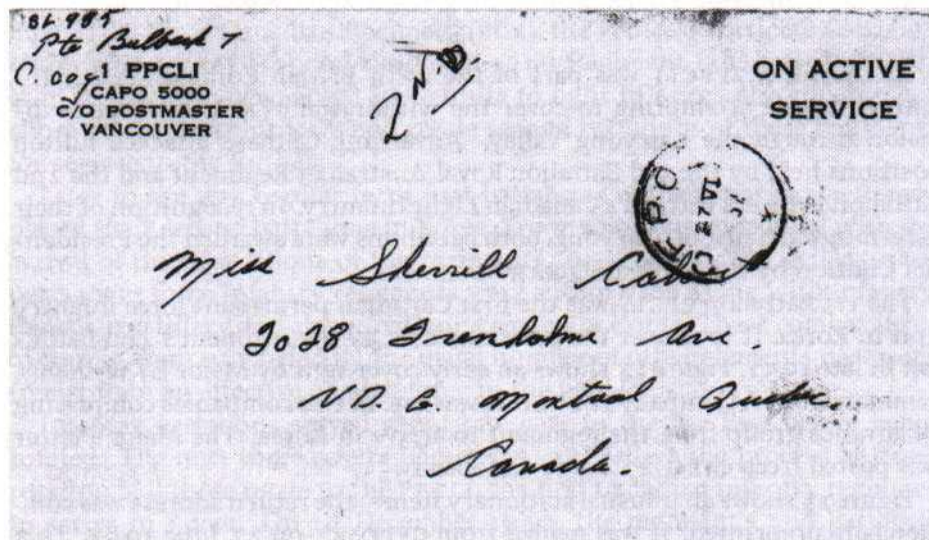 SL 985
Pte Bulback T
C. coy 1 PPCLI
CAPO 5000
C/O POSTMASTER
VANCOUVER
2 N.D.
ON ACTIVE
SERVICE
C.F.P.O
27 VI
Miss Sherrill
2028 Trenholme Ave.
N.D.G. Montreal Quebec.
Canada.